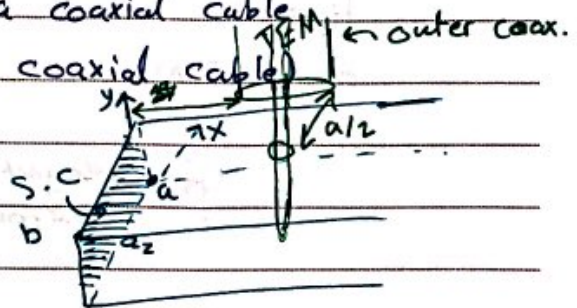 a coaxial cable
TEM ← outer coax.
coaxial cable)
y
x
a/2
S.C
a
b
a2